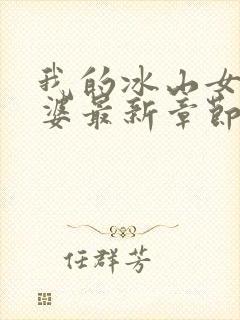 我的冰山女
婆最新章節
任群芳